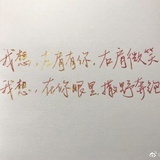 我想，左肩有你，右肩微笑
我想，在你眼里撒野奔跑